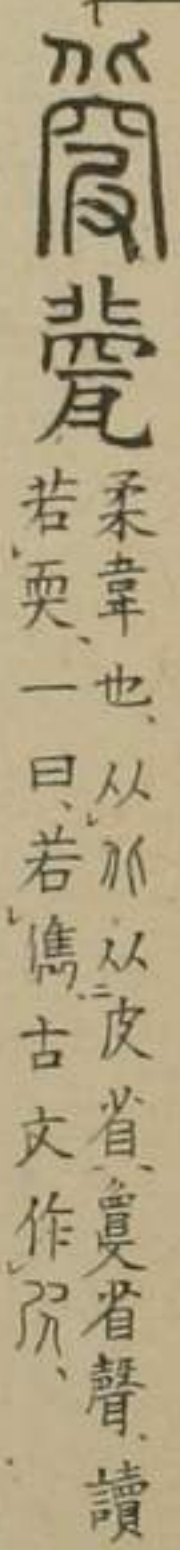 㼱
柔韋也、从北从皮省、夐省聲、讀
若耎、一曰、若儁古文作㼱、